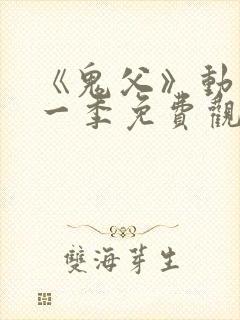 《鬼父》動
一季免費觀
雙海芽生